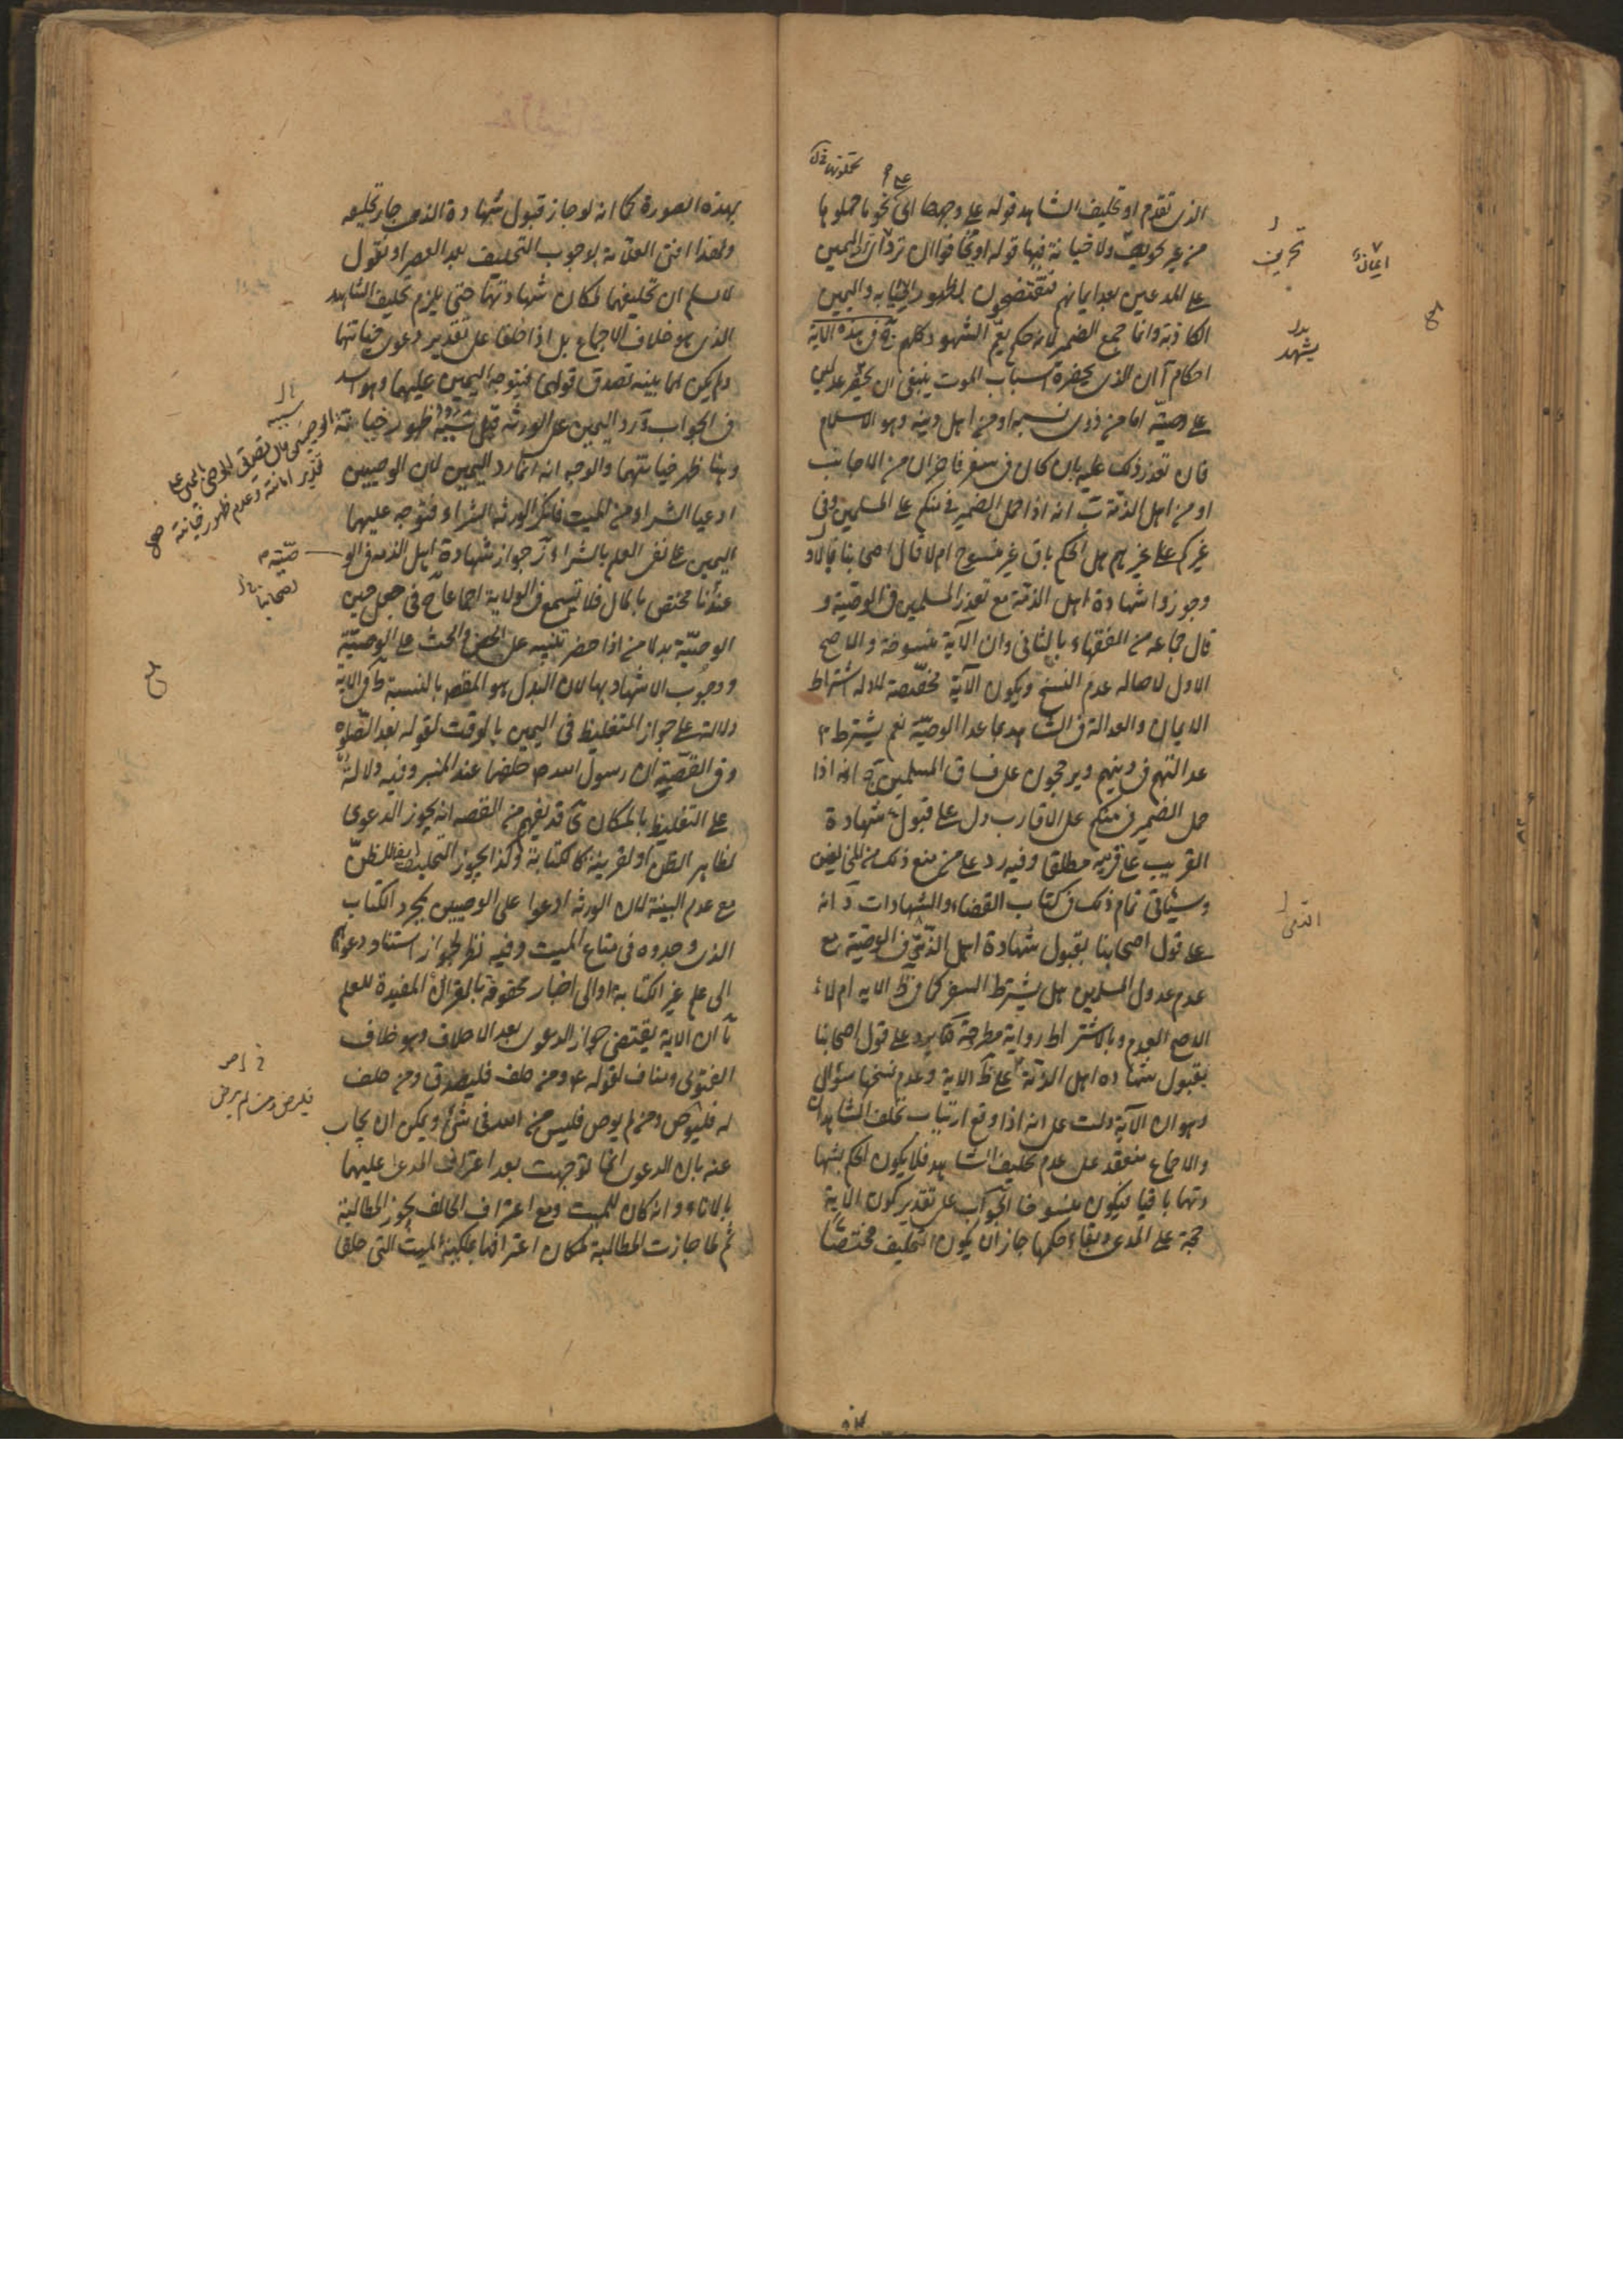 الذى تقدم او تحليف الشاهد قوله على وجهها اى نحو ما حملوها
من غير تحريف ولا خيانة فيها قوله او يخافوا ان ترد اى اليمين
على المدعين بعد ايمانهم فيفتضحون لظهور الخيانه واليمين
الكاذبة وانما جمع الضمير لانه حكم يعم الشهود كلهم وفى هذه الاية
احكام آ ان الذى يحضره اسباب الموت ينبغى ان يحضر عدلين
على وصيّة اما من ذوى نسبه او من اهل دينه وهو الاسلام
فان تعذر ذلك عليه بان كان فى سفر فاخران من الاجانب
او من اهل الذمة ب انه اذا حمل الضمير فى منكم على المسلمين وفى
غيركم على غيرهم هل الحكم باق غير منسوخ ام لا قال اصحابنا بالاول
وجوزوا شهادة اهل الذمة مع تعذر المسلمين فى الوصية و
قال جماعه من الفقهاء بالثانى وان الآية منسوخة والاصح
الاول لاصاله عدم النسخ ويكون الآية مخصّصة للادله اشتراط
الايمان والعدالة فى الشاهد بما عدا الوصيّة نعم يشترط
عدالتهم فى دينهم ويرجحون على فساق المسلمين ج انه اذا
حمل الضمير فى منكم على الاقارب دل على قبول شهادة
القريب على قريبه مطلقا وفيه رد على من منع ذلك من المخالفين
وسيأتى تمام ذلك فى كتاب القضاء والشهادات د انه
على قول اصحابنا بقبول شهادة اهل الذمّة فى الوصية مع
عدم عدول المسلمين هل يشترط السفر كما فى ظ الايه ام لا
الاصح العدم وبالاشتراط رواية مطرحة ه يرد على قول اصحابنا
بقبول شهاده اهل الذمة على ظ الاية وعدم نسخها سؤال
وهو ان الآية دلت على انه اذا وقع ارتياب تحلف الشاهدان
والاجماع منعقد على عدم تحليف الشاهد فلا يكون الحكم بشها
دتهما باقيا فيكون منسوخا الجواب على تقدير كون الاية
حجة على المدعى وبقاء حكمها جاز ان يكون التحليف مختصّا
تحريف
يشهد
الذمى
بهذه الصورة كما انه لو جاز قبول شهادة الذمى جاز تحليفه
ولهذا افتى العلامة بوجوب التحليف بعد العصر او نقول
لا نسلم ان تحليفهما لمكان شهادتهما حتى يلزم تحليف الشاهد
الذى هو خلاف الاجماع بل اذا حلفا على تقدير دعوى خيانتهما
ولم يكن لهما بينه تصدق قولهما فيتوجه اليمين عليهما وهو اسد
فى الجواب و رد اليمين على الورثه قيل سببه ظهور خيانة الوصيين
وهنا ظهر خيانتهما والوجه انه انما رد اليمين لان الوصيين
ادعيا الشراء من الميت فانكر الورثه الشراء فتوجه عليهما
اليمين على نفى العلم بالشراء ز جواز شهادة اهل الذمه فى الو
عندنا مختص بالمال فلا تسمع فى الولاية اجماعا ح فى جعل حين
الوصيّة بدلا من اذا حضر تنبيه على الحض والحث على الوصيّة
ووجوب الاشهاد بها لان البدل هو المقصود بالنسبة ط فى الاية
دلالة على جواز التغليظ فى اليمين بالوقت لقوله بعد الصلوه
وفى القصّة ان رسول الله ص حلفهما عند المنبر وفيه دلالة
على التغليظ بالمكان ى قد يفهم من القصه انه يجوز الدعوى
لظاهر الظن او لقرينة كالكتابة وكذا يجوز التحليف ايضا للظنّ
مع عدم البينة لان الورثه ادعوا على الوصيين بمجرد الكتاب
الذى وجدوه فى متاع الميت وفيه نظر لجواز استناد دعواهم
الى علم غير الكتابة او الى اخبار محفوفة بالقرائن المفيدة للعلم
يا ان الاية يقتضى جواز الدعوى بعد الاحلاف وهو خلاف
الفتوى ومناف لقوله ع ومن حلف فليصدق ومن حلف
له فليرض ومن لم يرض فليس من الله فى شئ ويمكن ان يجاب
عنه بان الدعوى انما توجهت بعد اعتراف المدعى عليهما
بالاناء وانه كان للميت ومع اعتراف الحالف يجوز المطالبة
ثم لما جازت المطالبة لمكان اعترافهما بملكية الميت التى حلفا
سببه
تقدير امانته وعدم ظهور خيانة
صيّة
فليرض ومن لم يرض